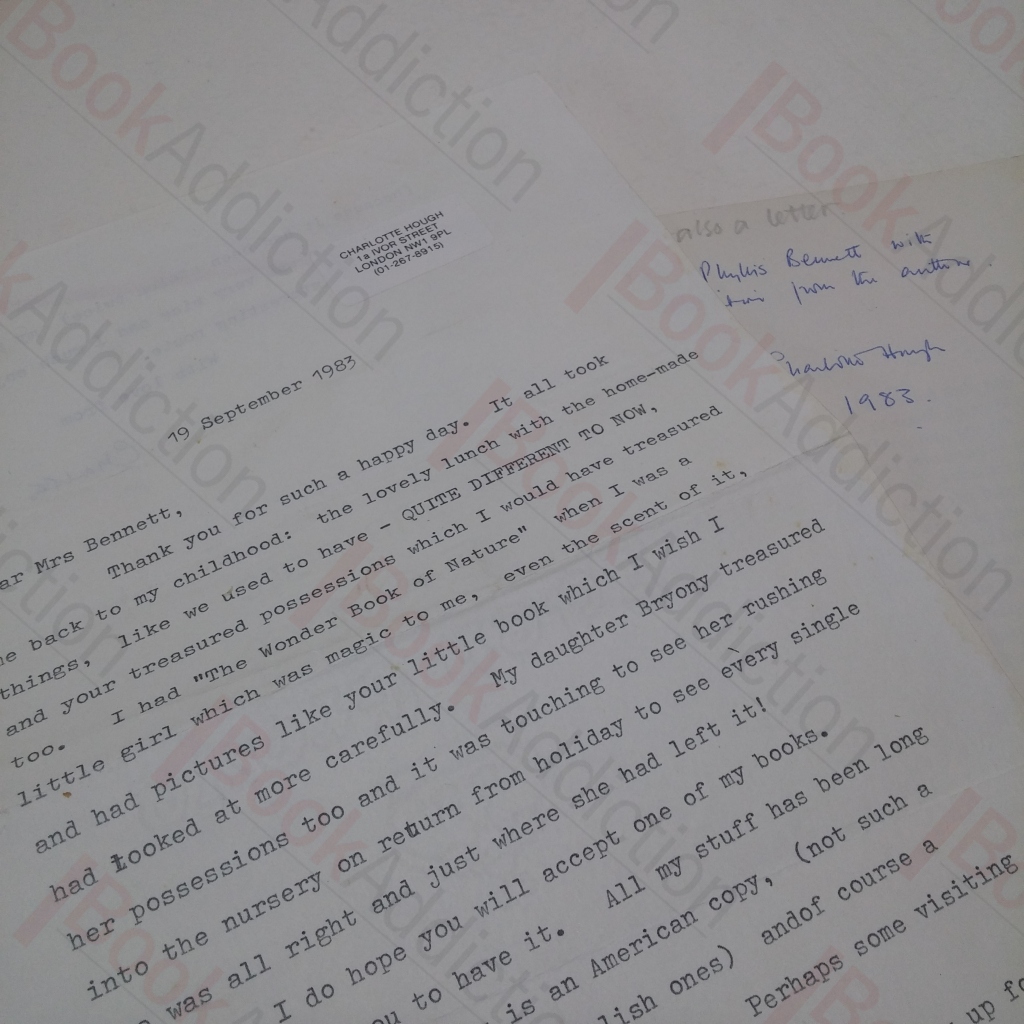 CHARLOTTE HOUGH
1a IVOR STREET
LONDON NW1 9PL
(01-267-8915)
19 September 1983
ar Mrs Bennett,
Thank you for such a happy day. It all took
me back to my childhood: the lovely lunch with the home-made
things, like we used to have - QUITE DIFFERENT TO NOW,
and your treasured possessions which I would have treasured
too. I had "The Wonder Book of Nature" when I was a
little girl which was magic to me, even the scent of it,
and had pictures like your little book which I wish I
had looked at more carefully. My daughter Bryony treasured
her possessions too and it was touching to see her rushing
into the nursery on return from holiday to see every single
was all right and just where she had left it!
I do hope you will accept one of my books.
ou to have it. All my stuff has been long
is an American copy, (not such a
lish ones) andof course a
Perhaps some visiting
up fo
also a letter
Phyllis Bennett with
from the author
Charlotte Hough
1983.
BookAddiction